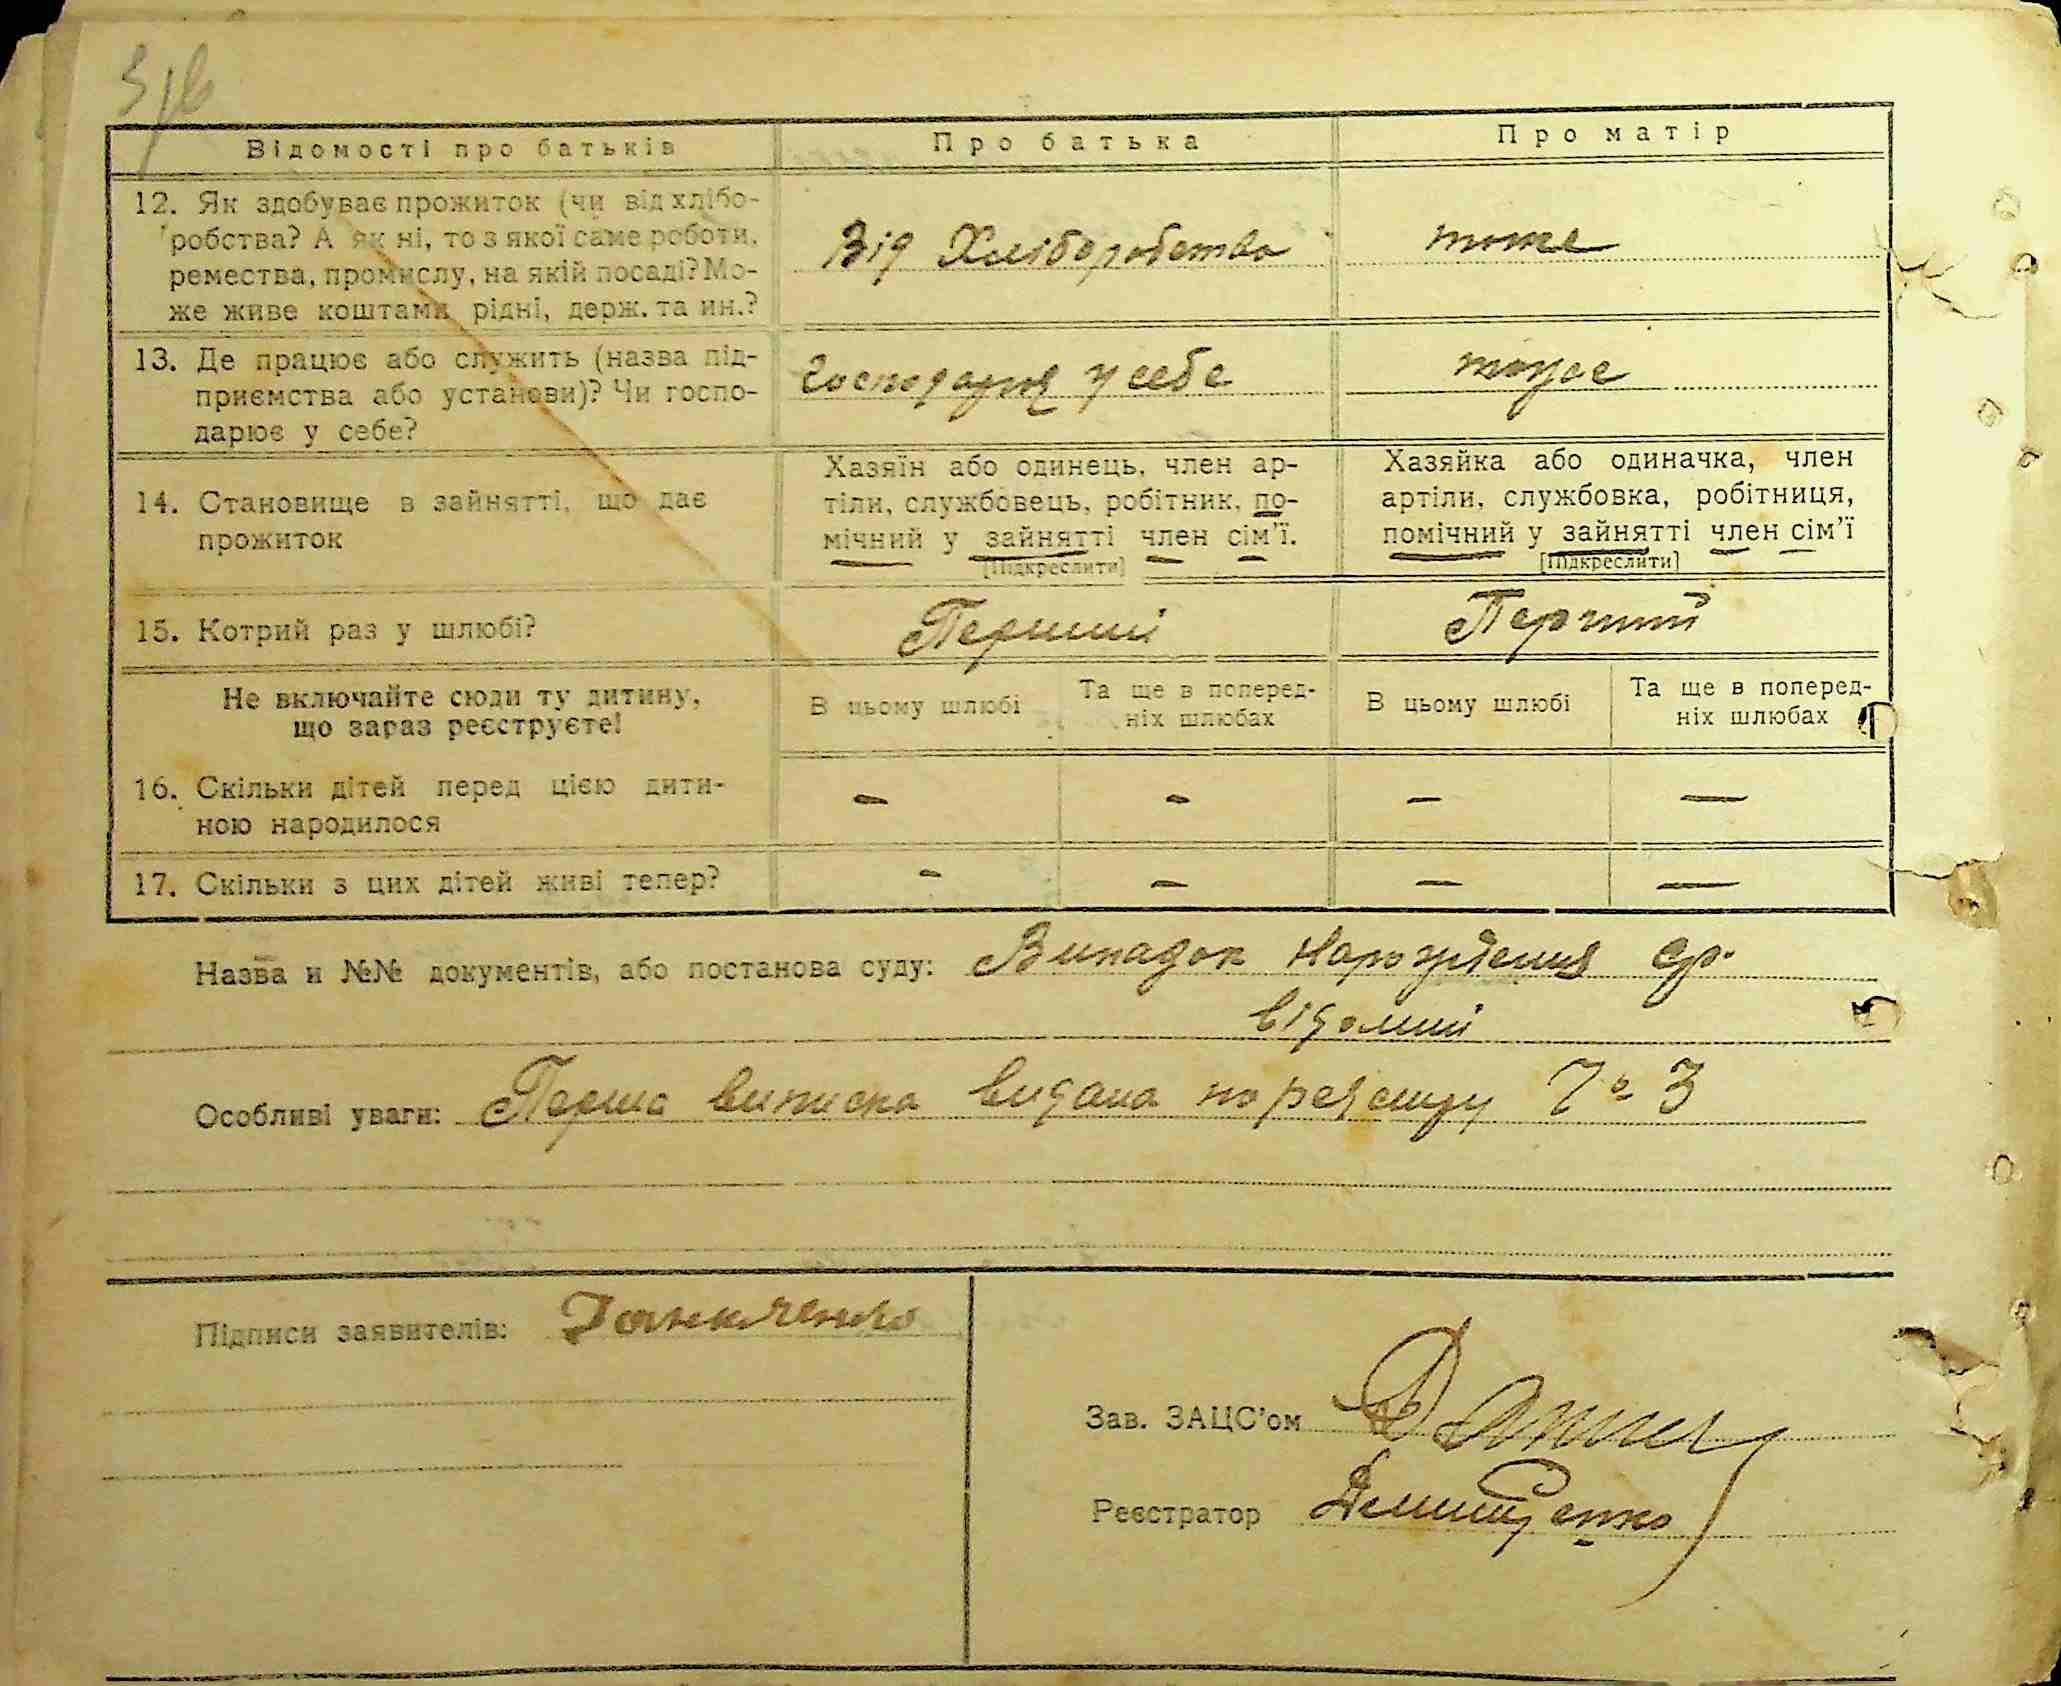 Відомості про батьків
Про батька
Про матір
12. Як здобуває прожиток (чи від хлібо-
робства? А як ні, то з якої саме роботи,
ремества, промислу, на якій посаді? Мо-
же живе коштами рідні, держ. та ин.?
Від Хліборобства
тоже
13. Де працює або служить (назва під-
приємства або установи)? Чи госпо-
дарює у себе?
Господарря у себе
тоже
14. Становище в зайнятті, що дає
прожиток
Хазяїн або одинець, член ар-
тіли, службовець, робітник, по-
мічний у зайнятті член сім'ї.
[Підкреслити]
Хазяйка або одиначка, член
артіли, службовка, робітниця,
помічний у зайнятті член сім'ї
[Підкреслити]
15. Котрий раз у шлюбі?
Перший
Перший
Не включайте сюди ту дитину,
що зараз реєструєте!
В цьому шлюбі
Та ще в поперед-
ніх шлюбах
В цьому шлюбі
Та ще в поперед-
ніх шлюбах
16. Скільки дітей перед цією дити-
ною народилося
– – – –
17. Скільки з цих дітей живі тепер?
– – – –
Назва и №№ документів, або постанова суду: Випадок народження
відомий
Особливі уваги: Перша виписка видана по реєстру № 3
Підписи заявителів:
Зав. ЗАЦС'ом
Реєстратор